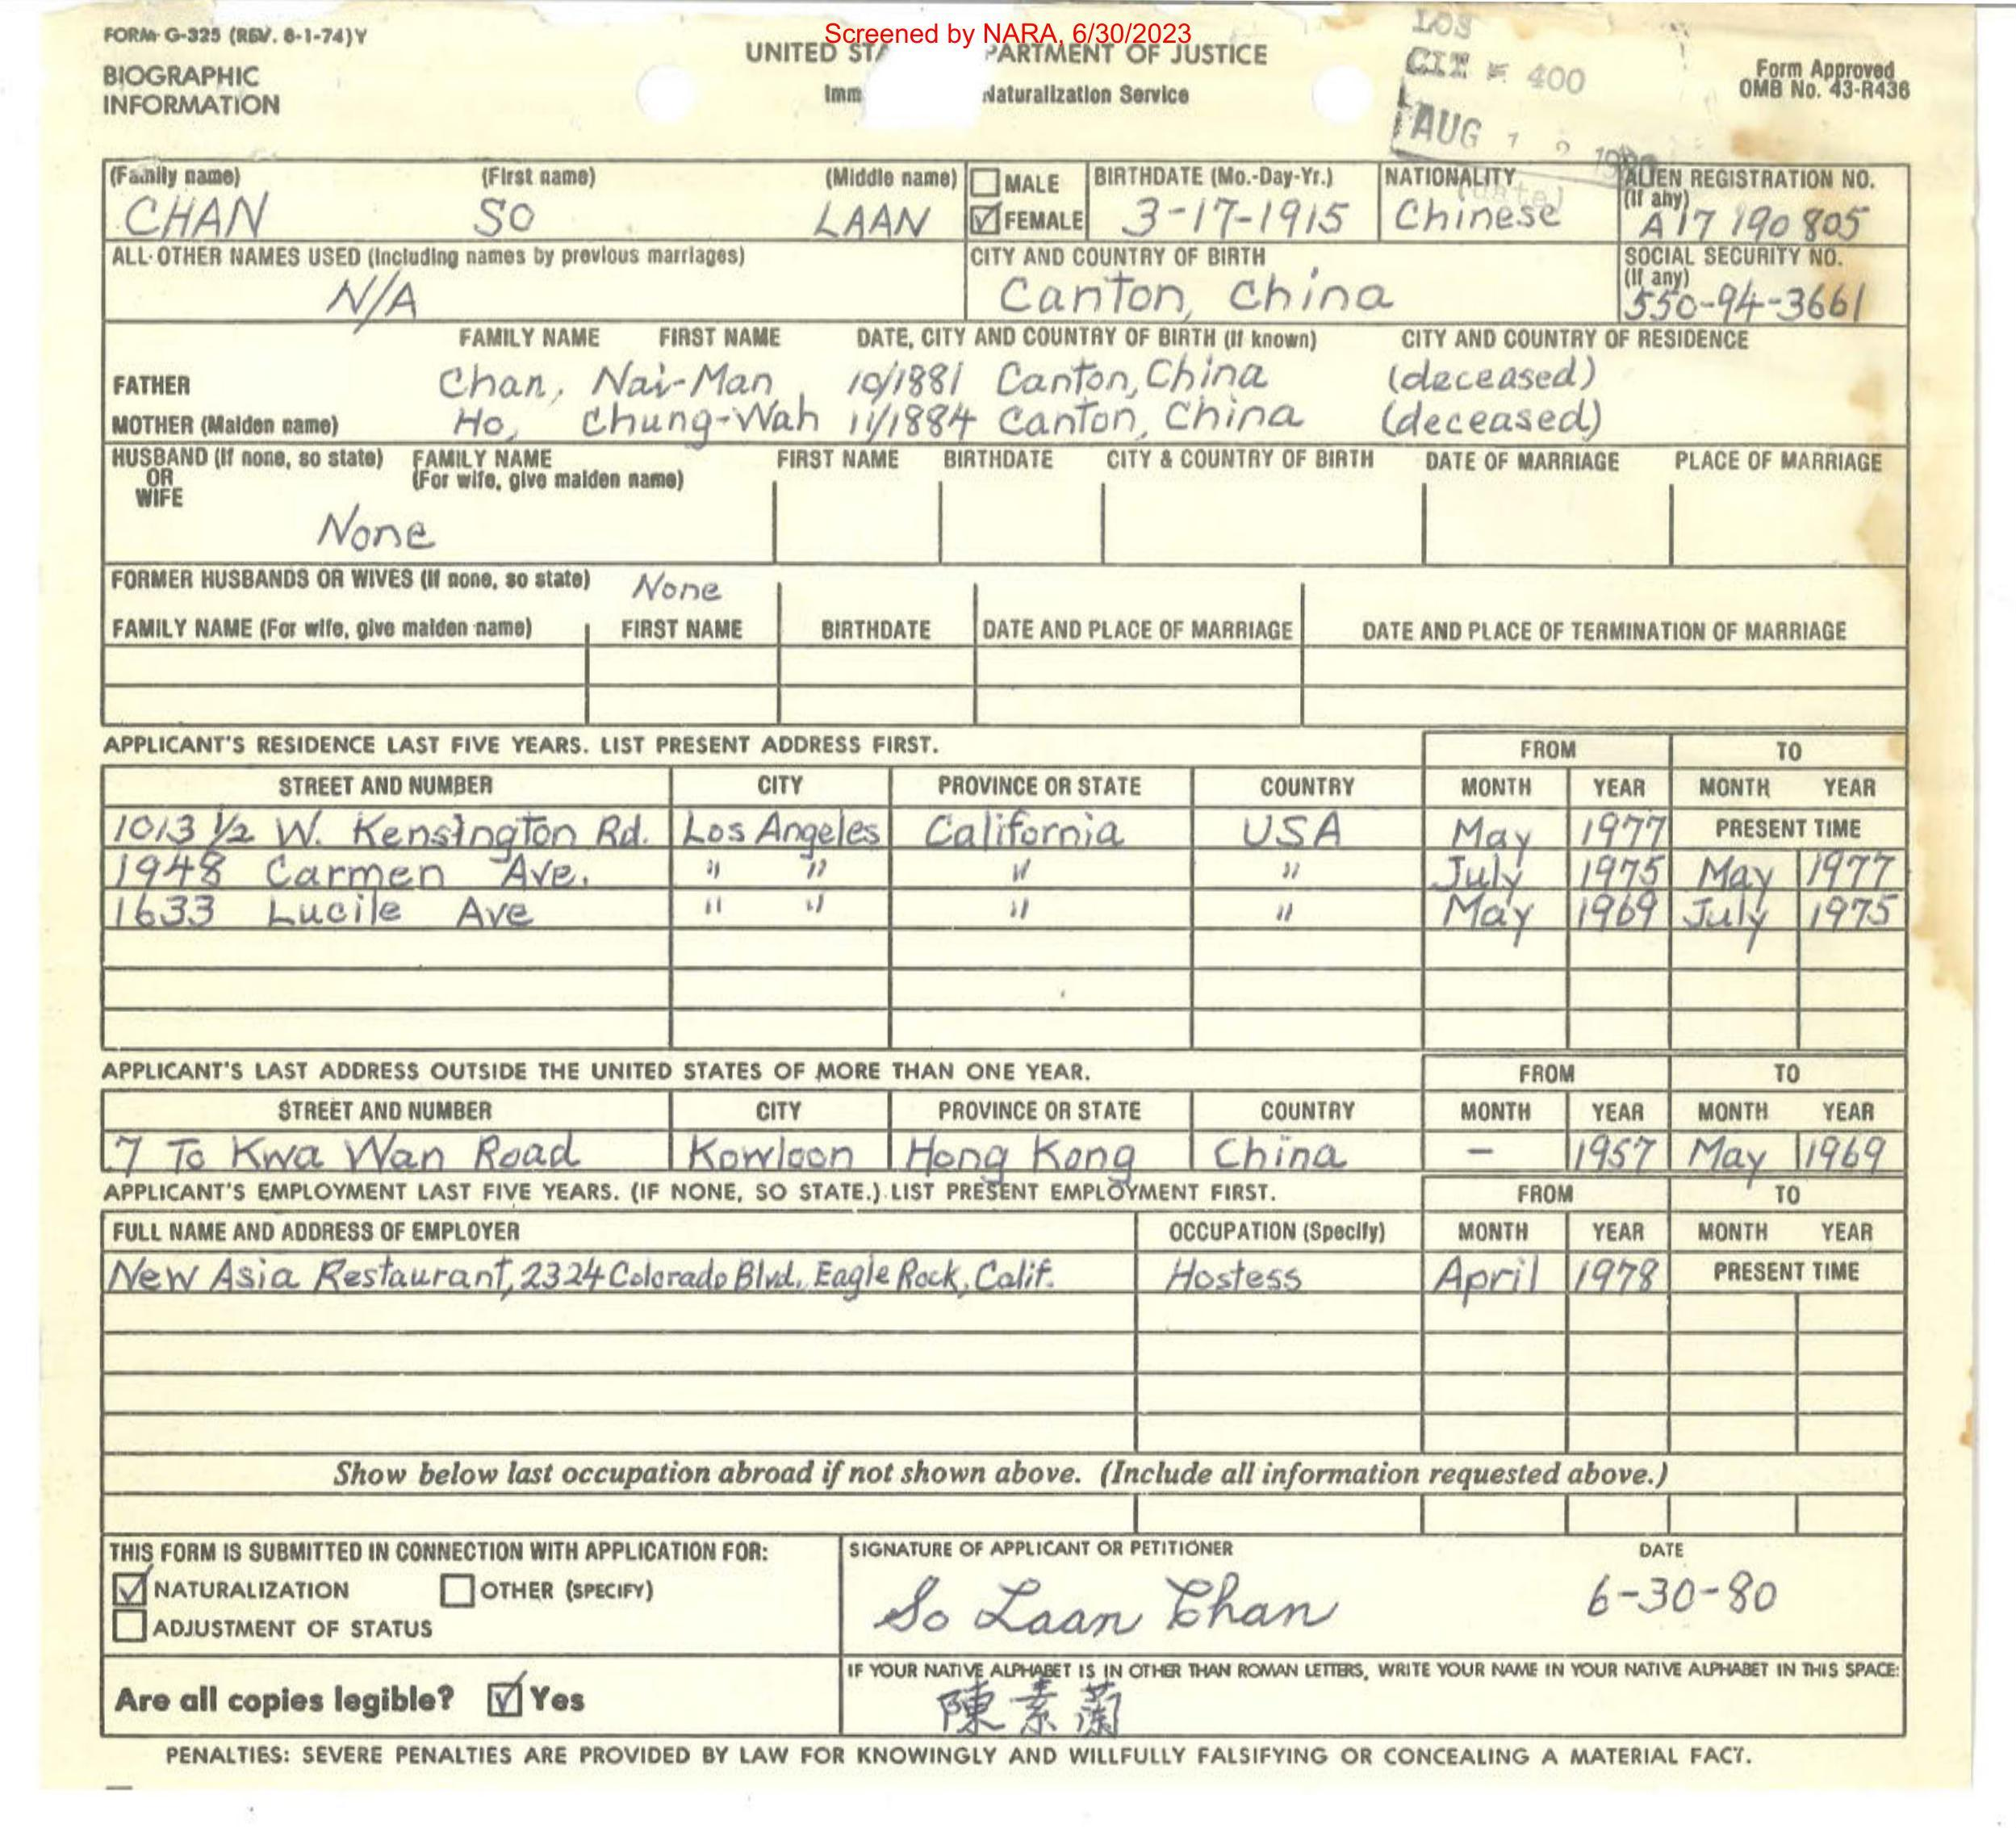 Screened by NARA, 6/30/2023
FORM G-325 (REV. 8-1-74)Y
BIOGRAPHIC
INFORMATION
UNITED STA PARTMENT OF JUSTICE
Imm Naturalization Service
LOS
CIT # 400
AUG
Form Approved
OMB No. 43-R436
(Family name) (First name) (Middle name) MALE BIRTHDATE (Mo.-Day-Yr.) NATIONALITY ALIEN REGISTRATION NO.
(If any)
CHAN SO LAAN FEMALE 3-17-1915 Chinese A17 190 805
ALL OTHER NAMES USED (Including names by previous marriages) CITY AND COUNTRY OF BIRTH SOCIAL SECURITY NO.
(If any)
N/A Canton, China 550-94-3661
FAMILY NAME FIRST NAME DATE, CITY AND COUNTRY OF BIRTH (If known) CITY AND COUNTRY OF RESIDENCE
FATHER Chan, Nai-Man 10/1881 Canton, China (deceased)
MOTHER (Maiden name) Ho, Chung-Wah 11/1884 Canton, China (deceased)
HUSBAND (If none, so state) FAMILY NAME FIRST NAME BIRTHDATE CITY & COUNTRY OF BIRTH DATE OF MARRIAGE PLACE OF MARRIAGE
OR (For wife, give maiden name)
WIFE
None
FORMER HUSBANDS OR WIVES (If none, so state) None
FAMILY NAME (For wife, give maiden name) FIRST NAME BIRTHDATE DATE AND PLACE OF MARRIAGE DATE AND PLACE OF TERMINATION OF MARRIAGE
APPLICANT'S RESIDENCE LAST FIVE YEARS. LIST PRESENT ADDRESS FIRST. FROM TO
STREET AND NUMBER CITY PROVINCE OR STATE COUNTRY MONTH YEAR MONTH YEAR
1013 1/2 W. Kensington Rd. Los Angeles California USA May 1977 PRESENT TIME
1948 Carmen Ave. " " " " July 1975 May 1977
1633 Lucile Ave " " " " May 1969 July 1975
APPLICANT'S LAST ADDRESS OUTSIDE THE UNITED STATES OF MORE THAN ONE YEAR. FROM TO
STREET AND NUMBER CITY PROVINCE OR STATE COUNTRY MONTH YEAR MONTH YEAR
7 To Kwa Wan Road Kowloon Hong Kong China – 1957 May 1969
APPLICANT'S EMPLOYMENT LAST FIVE YEARS. (IF NONE, SO STATE.) LIST PRESENT EMPLOYMENT FIRST. FROM TO
FULL NAME AND ADDRESS OF EMPLOYER OCCUPATION (Specify) MONTH YEAR MONTH YEAR
New Asia Restaurant, 2324 Colorado Blvd., Eagle Rock, Calif. Hostess April 1978 PRESENT TIME
Show below last occupation abroad if not shown above. (Include all information requested above.)
THIS FORM IS SUBMITTED IN CONNECTION WITH APPLICATION FOR: SIGNATURE OF APPLICANT OR PETITIONER DATE
NATURALIZATION OTHER (SPECIFY) So Laan Chan 6-30-80
ADJUSTMENT OF STATUS
IF YOUR NATIVE ALPHABET IS IN OTHER THAN ROMAN LETTERS, WRITE YOUR NAME IN YOUR NATIVE ALPHABET IN THIS SPACE:
Are all copies legible? Yes 陳素蘭
PENALTIES: SEVERE PENALTIES ARE PROVIDED BY LAW FOR KNOWINGLY AND WILLFULLY FALSIFYING OR CONCEALING A MATERIAL FACT.